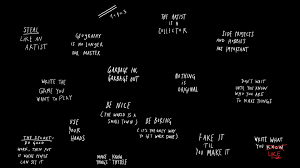 STEAL
LIKE AN
ARTIST
GEOGRAPHY
IS NO LONGER
OUR MASTER
THE ARTIST
IS A
COLLECTOR
SIDE PROJECTS
AND HOBBIES
ARE IMPORTANT
WRITE THE
GAME YOU
WANT TO PLAY
GARBAGE IN,
GARBAGE OUT
NOTHING
IS
ORIGINAL
DON'T WAIT
UNTIL YOU KNOW
WHO YOU ARE
TO MAKE THINGS
BE NICE
(THE WORLD IS A
SMALL TOWN)
USE
YOUR
HANDS
BE BORING
(IT'S THE ONLY WAY
TO GET WORK DONE)
FAKE IT
'TIL YOU
MAKE IT
WRITE WHAT
YOU KNOW
LIKE
THE SECRET:
DO GOOD
WORK, THEN PUT
IT WHERE PEOPLE
CAN SEE IT
MAKE
THINGS
KNOW